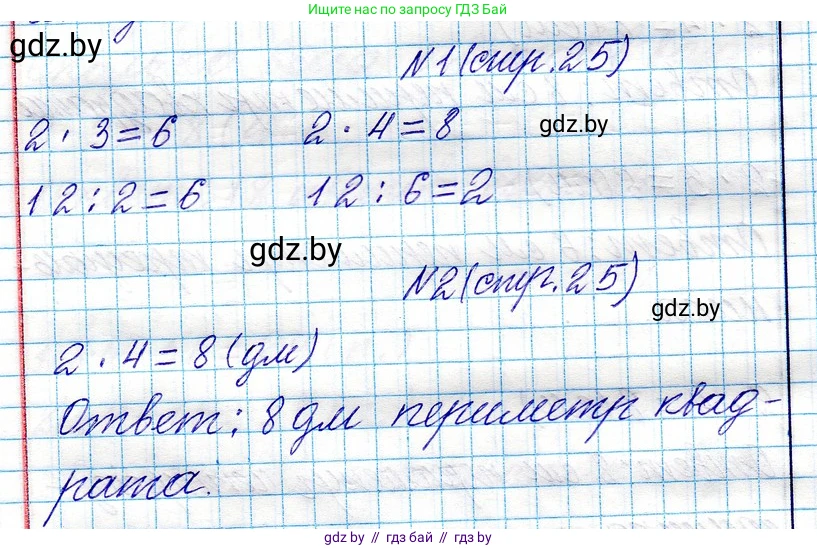 Ищите нас по запросу ГДЗ Бай
gdz.by
N1 (стр. 25)
2 · 3 = 6 2 · 4 = 8 gdz.by
12 : 2 = 6 12 : 6 = 2
gdz.by
N2 (стр. 25)
gdz.by
2 · 4 = 8 (дм)
Ответ: 8 дм периметр квад-
рата.
gdz.by // гдз бай // гдз by